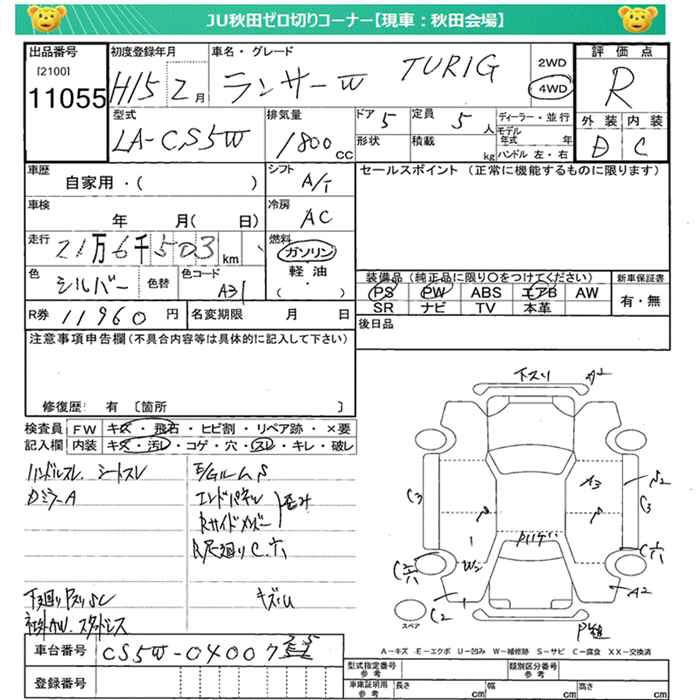 JU秋田ゼロ切りコーナー【現車：秋田会場】
出品番号
[2100]
11055
初度登録年月
H15 2月
車名・グレード
ランサーW TURIG
2WD
4WD
評価点
R
型式
LA-CS5W
排気量
1800cc
ドア 5
定員 5人
ディーラー・並行
モデル年式 年
形状
積載 kg
ハンドル 左・右
外装 内装
D C
車歴
自家用・( )
シフト
A/T
セールスポイント (正常に機能するものに限ります)
車検
年 月( 日)
冷房
AC
走行
21万6千503km
燃料
ガソリン
軽油
( )
色
シルバー
色替
色コード
A31
装備品(純正品に限り○をつけてください)
PS PW ABS エアB AW
SR ナビ TV 本革
新車保証書
有・無
R券 11960円
名変期限 月 日
後日品
注意事項申告欄(不具合内容等は具体的に記入して下さい)
修復歴: 有 [箇所 ]
検査員記入欄
FW キズ・飛石・ヒビ割・リペア跡・×要
内装 キズ・汚レ・コゲ・穴・スレ・キレ・破レ
ハンドルスレ シートスレ
カミラーA
E/GルームS
エンドパネル
Rサイドメンバー
歪み
R尺廻りC.穴
下廻りキズリSC
社外AW. スタッドレス
キズ・U
下スリ
A2
C3
A3
C3
W2
A2
C2
スペア
A-キズ E-エクボ U-凹み W-補修跡 S-サビ C-腐食 XX-交換済
車台番号
CS5W-04007
登録番号
型式指定番号
参考
類別区分番号
参考
車庫証明用
参考
長さ cm
幅 cm
高さ cm